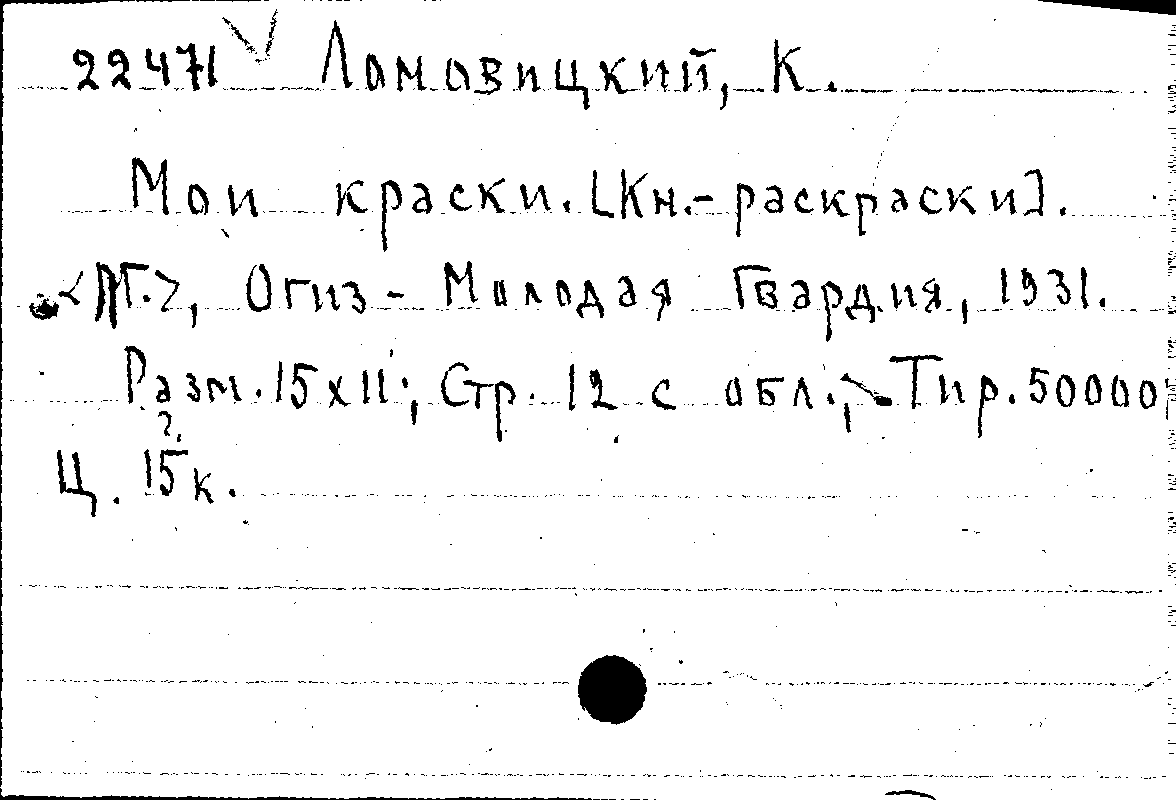 22471 Ломовицкий, К.
Мои краски. [Кн.-раскраски].
Огиз - Молодая Гвардия, 1931.
Разм. 15х11; Стр. 12 с обл.; Тир. 50000
?
Ц. 15 к.